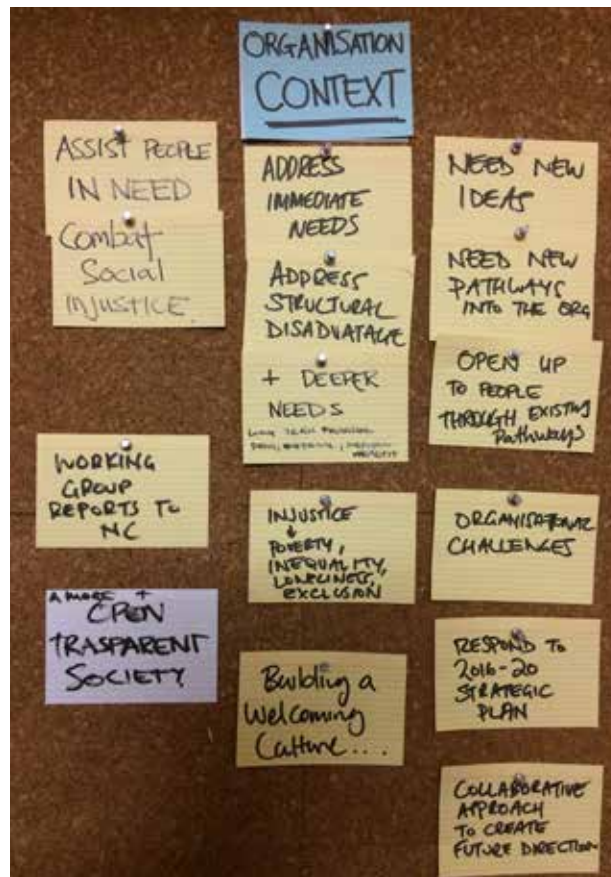 ORGANISATION
CONTEXT
ASSIST PEOPLE
IN NEED
Combat
Social
INJUSTICE.
WORKING
GROUP
REPORTS TO
NC
A MORE +
OPEN
TRASPARENT
SOCIETY
ADDRESS
IMMEDIATE
NEEDS
ADDRESS
STRUCTURAL
DISADVATAGE
+ DEEPER
NEEDS
LONG TERM
INJUSTICE
POVERTY,
INEQUALITY,
LONELINESS,
EXCLUSION
Building a
Welcoming
Culture....
NEED NEW
IDEAS
NEED NEW
PATHWAYS
INTO THE ORG
OPEN UP
TO PEOPLE
THROUGH EXISTING
Pathways
ORGANISATIONAL
CHALLENGES
RESPOND TO
2016-20
STRATEGIC
PLAN
COLLABORATIVE
APPROACH
TO CREATE
FUTURE DIRECTION